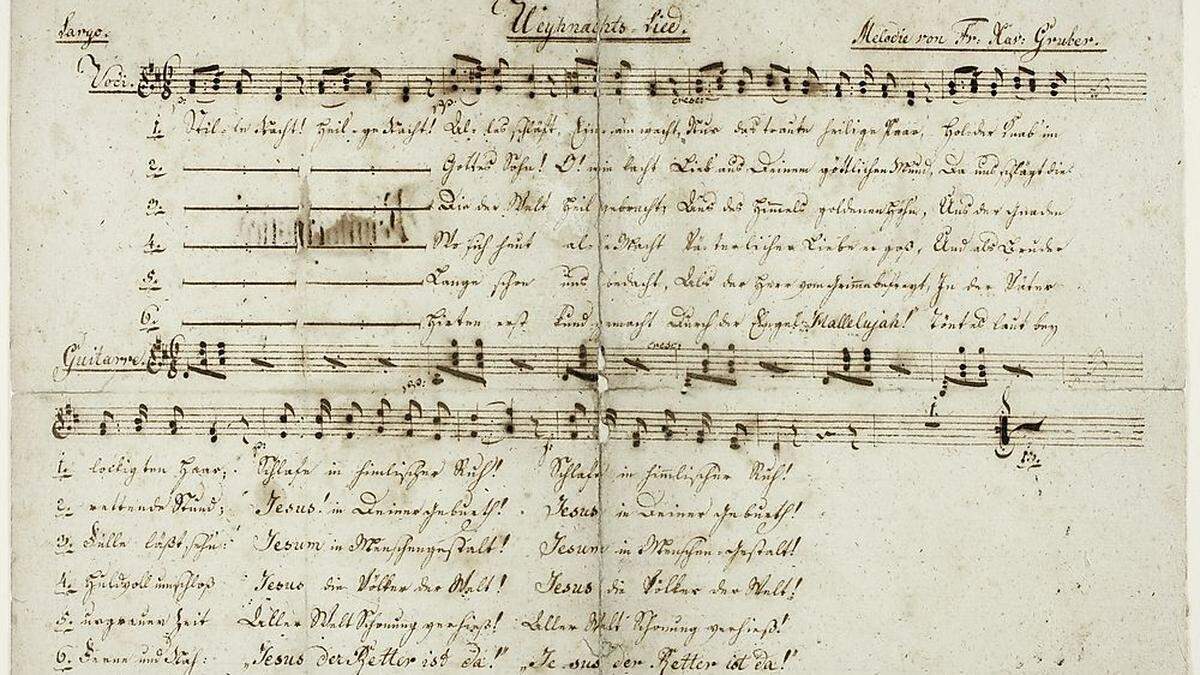 Weyhnachts-Lied.
Largo. Melodie von Fr: Xav: Gruber.
Voci.
cresc:
1. Stil-le Nacht! Heil-ge Nacht! Al-les schläft, Einsam wacht, Nur das traute heilige Paar, Holder Knab im
2. Gottes Sohn! O! wie lacht Lieb aus Deinem göttlichen Mund, Da uns schlägt die
3. Die der Welt Heil gebracht, Aus des Himmels goldenen Höhn, Aus der Gnaden
4. Wo sich heut alle Macht Väterlicher Liebe ergoß, Und als Bruder
5. Lange schon uns bedacht, Als der Herr vom Grimme befreyt, In der Väter
6. Hirten erst kund gemacht Durch der Engel „Hallelujah!" Tönt es laut bey
Guitarre.
cresc:
1. lockigten Haar; Schlafe in himlischer Ruh! Schlafe in himlischer Ruh!
2. rettende Stund; Jesus! in Deiner Geburth! Jesus in Deiner Geburth!
3. Fülle läßt sehn: Jesum in Menschengestalt! Jesum in Menschen-Gestalt!
4. Huldvoll umschloß Jesus die Völker der Welt! Jesus die Völker der Welt!
5. urgrauer Zeit Aller Welt Schonung verhieß! Aller Welt Schonung verhieß!
6. Ferne und Nah: „Jesus der Retter ist da!" „Jesus der Retter ist da!"